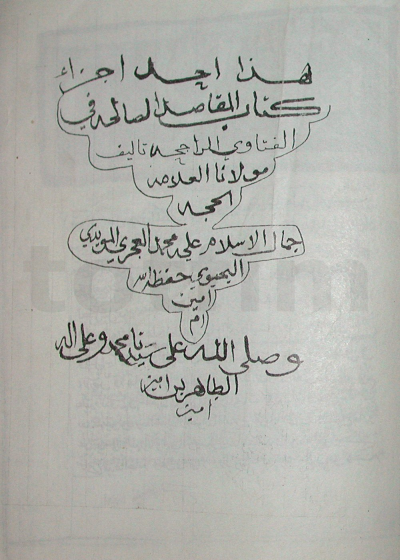 هذا احد اجزاء
كتاب المقاصد الصالحه في
الفتاوي الراجحه تاليف
مولانا العلامه
الحجه
جمال الاسلام علي محمد العجري المويدي
اليحيوي حفظه الله
امين
ام
وصلى الله على سيدنا محمد وعلى اله
الطاهرين امين
امين